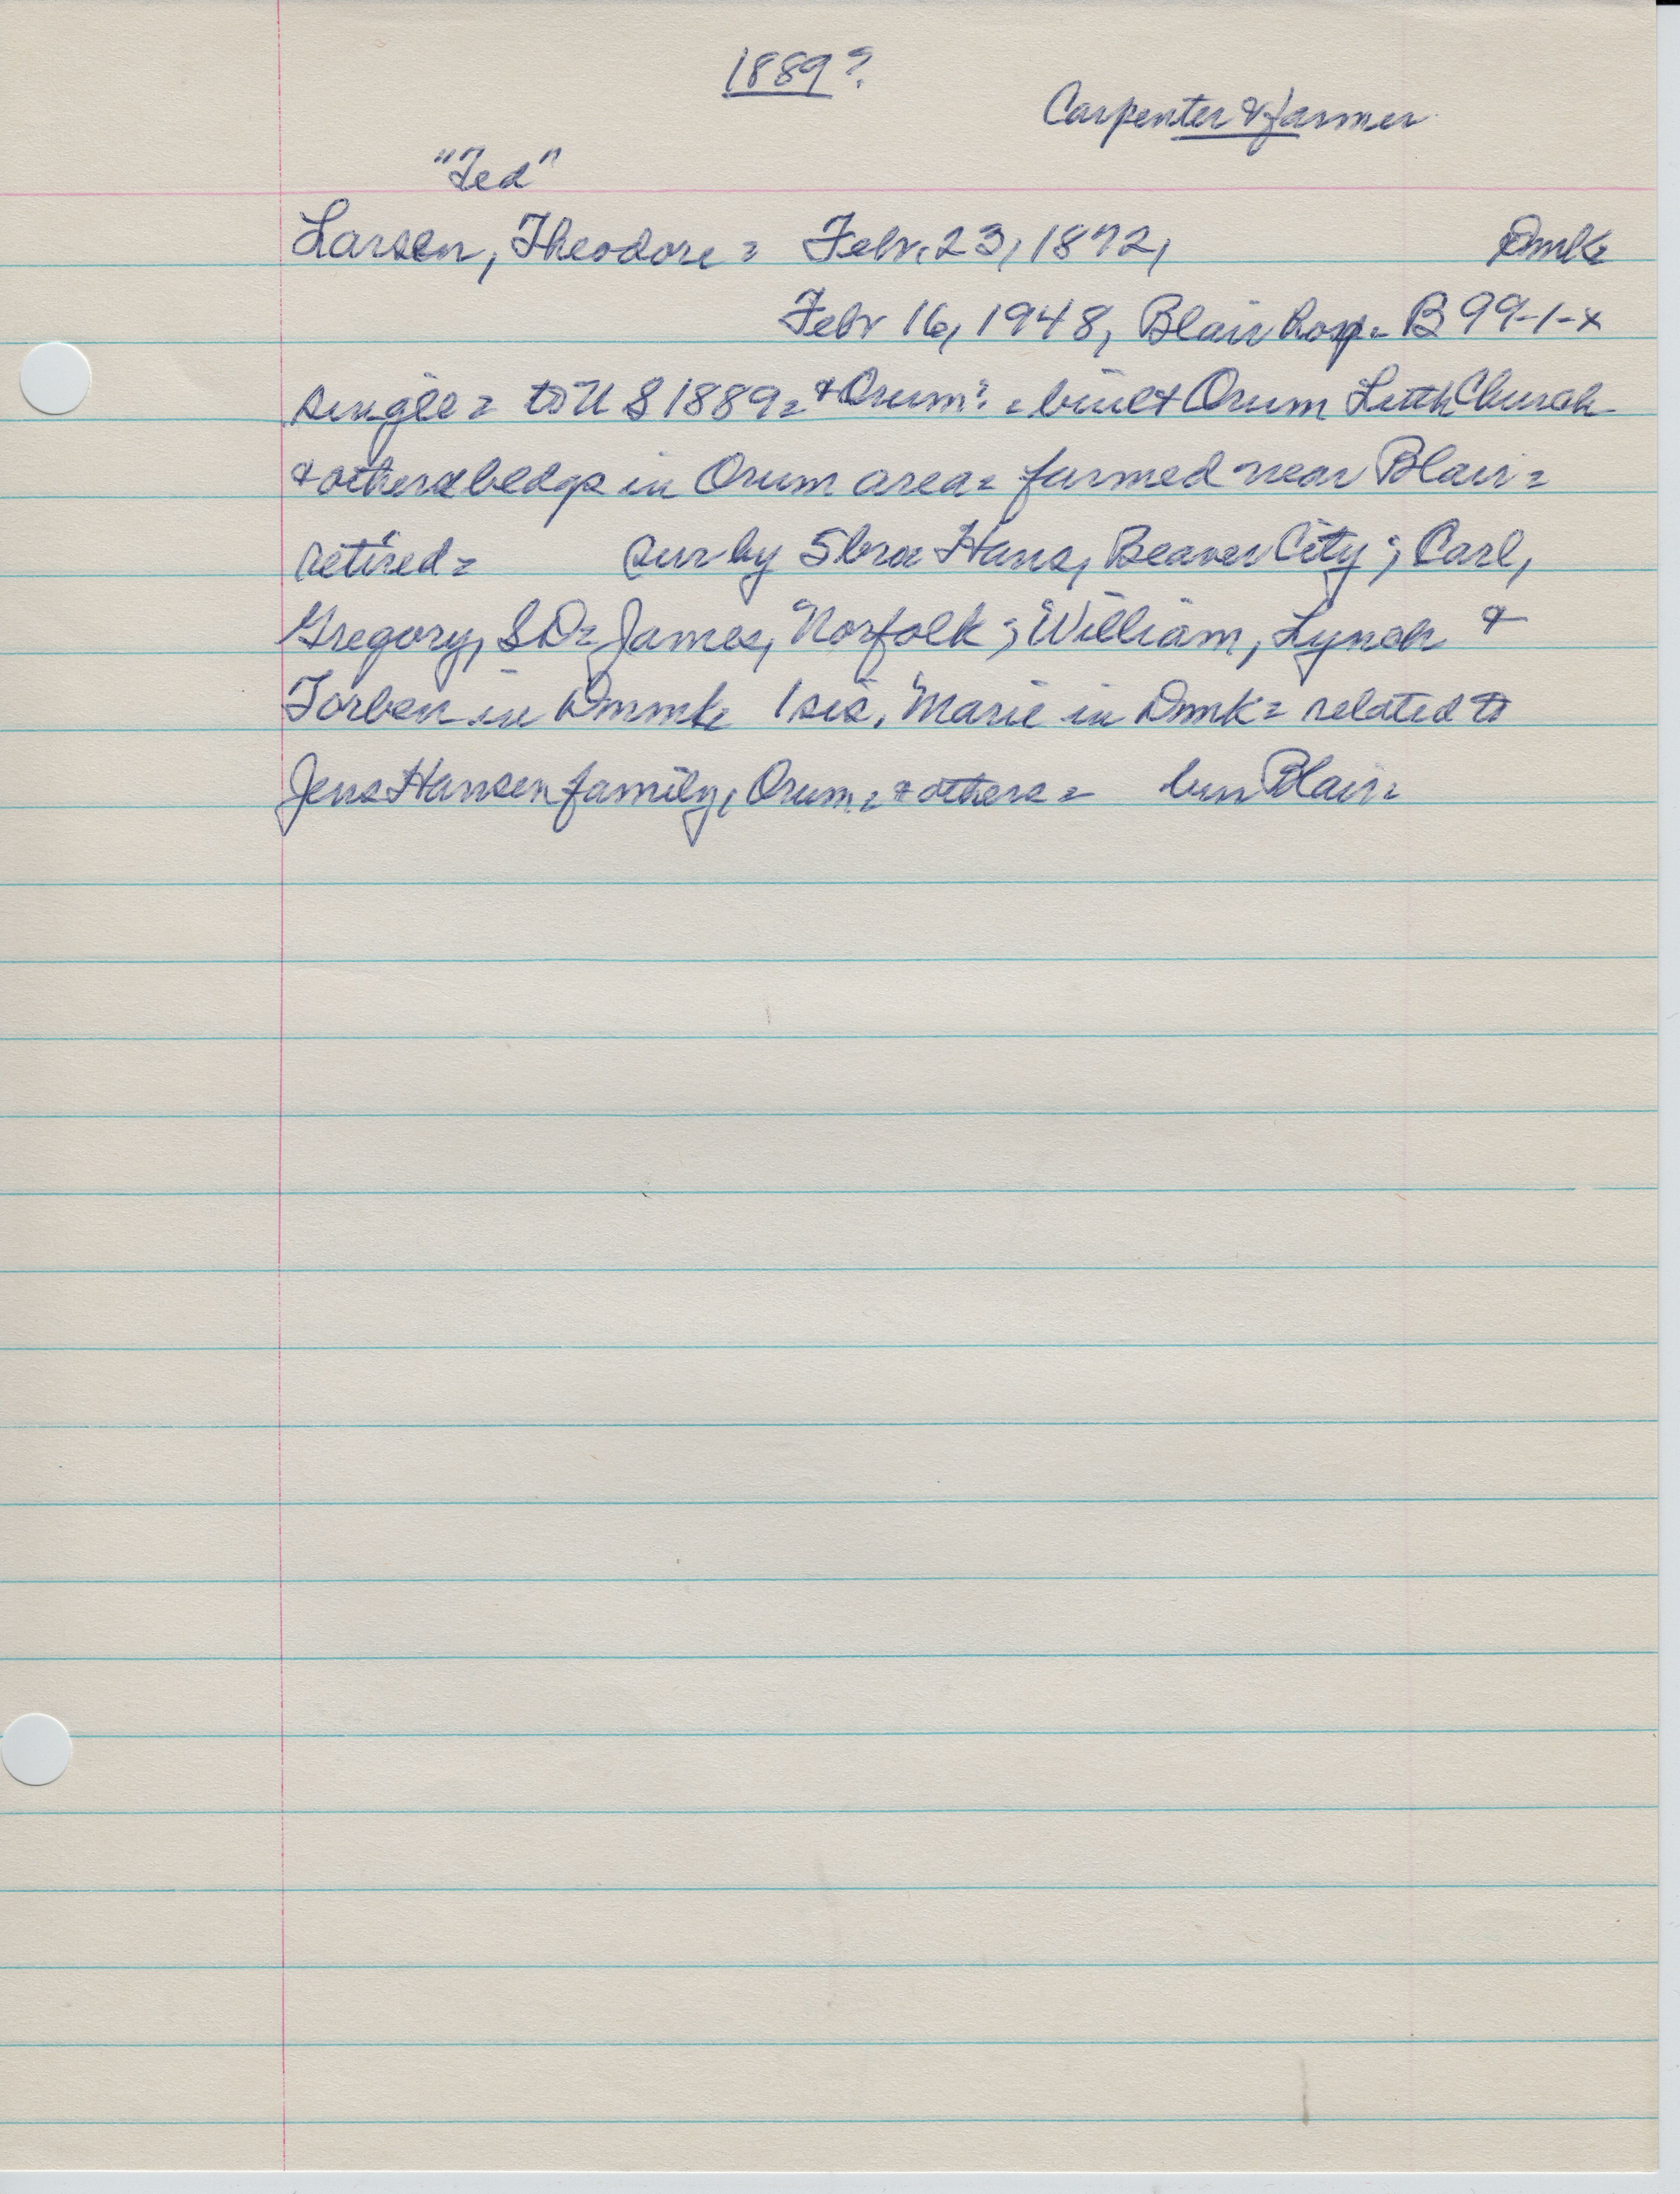 1889?
Carpenter & farmer
"Ted"
Larsen, Theodore = Febr. 23, 1872, Dmk=
Febr 16, 1948, Blair hosp = B 99-1-x
single = to U S 1889 = & Orum? = built Orum Luth Church
& other bldgs in Orum area = farmed near Blair =
retired = sur by 5 bros Hans, Beaver City; Carl,
Gregory, SD = James, Norfolk; William, Lynch &
Torben in Dnmk 1 sis, Marie in Dnmk = related to
Jens Hansen family, Orum, = & others = bur Blair =